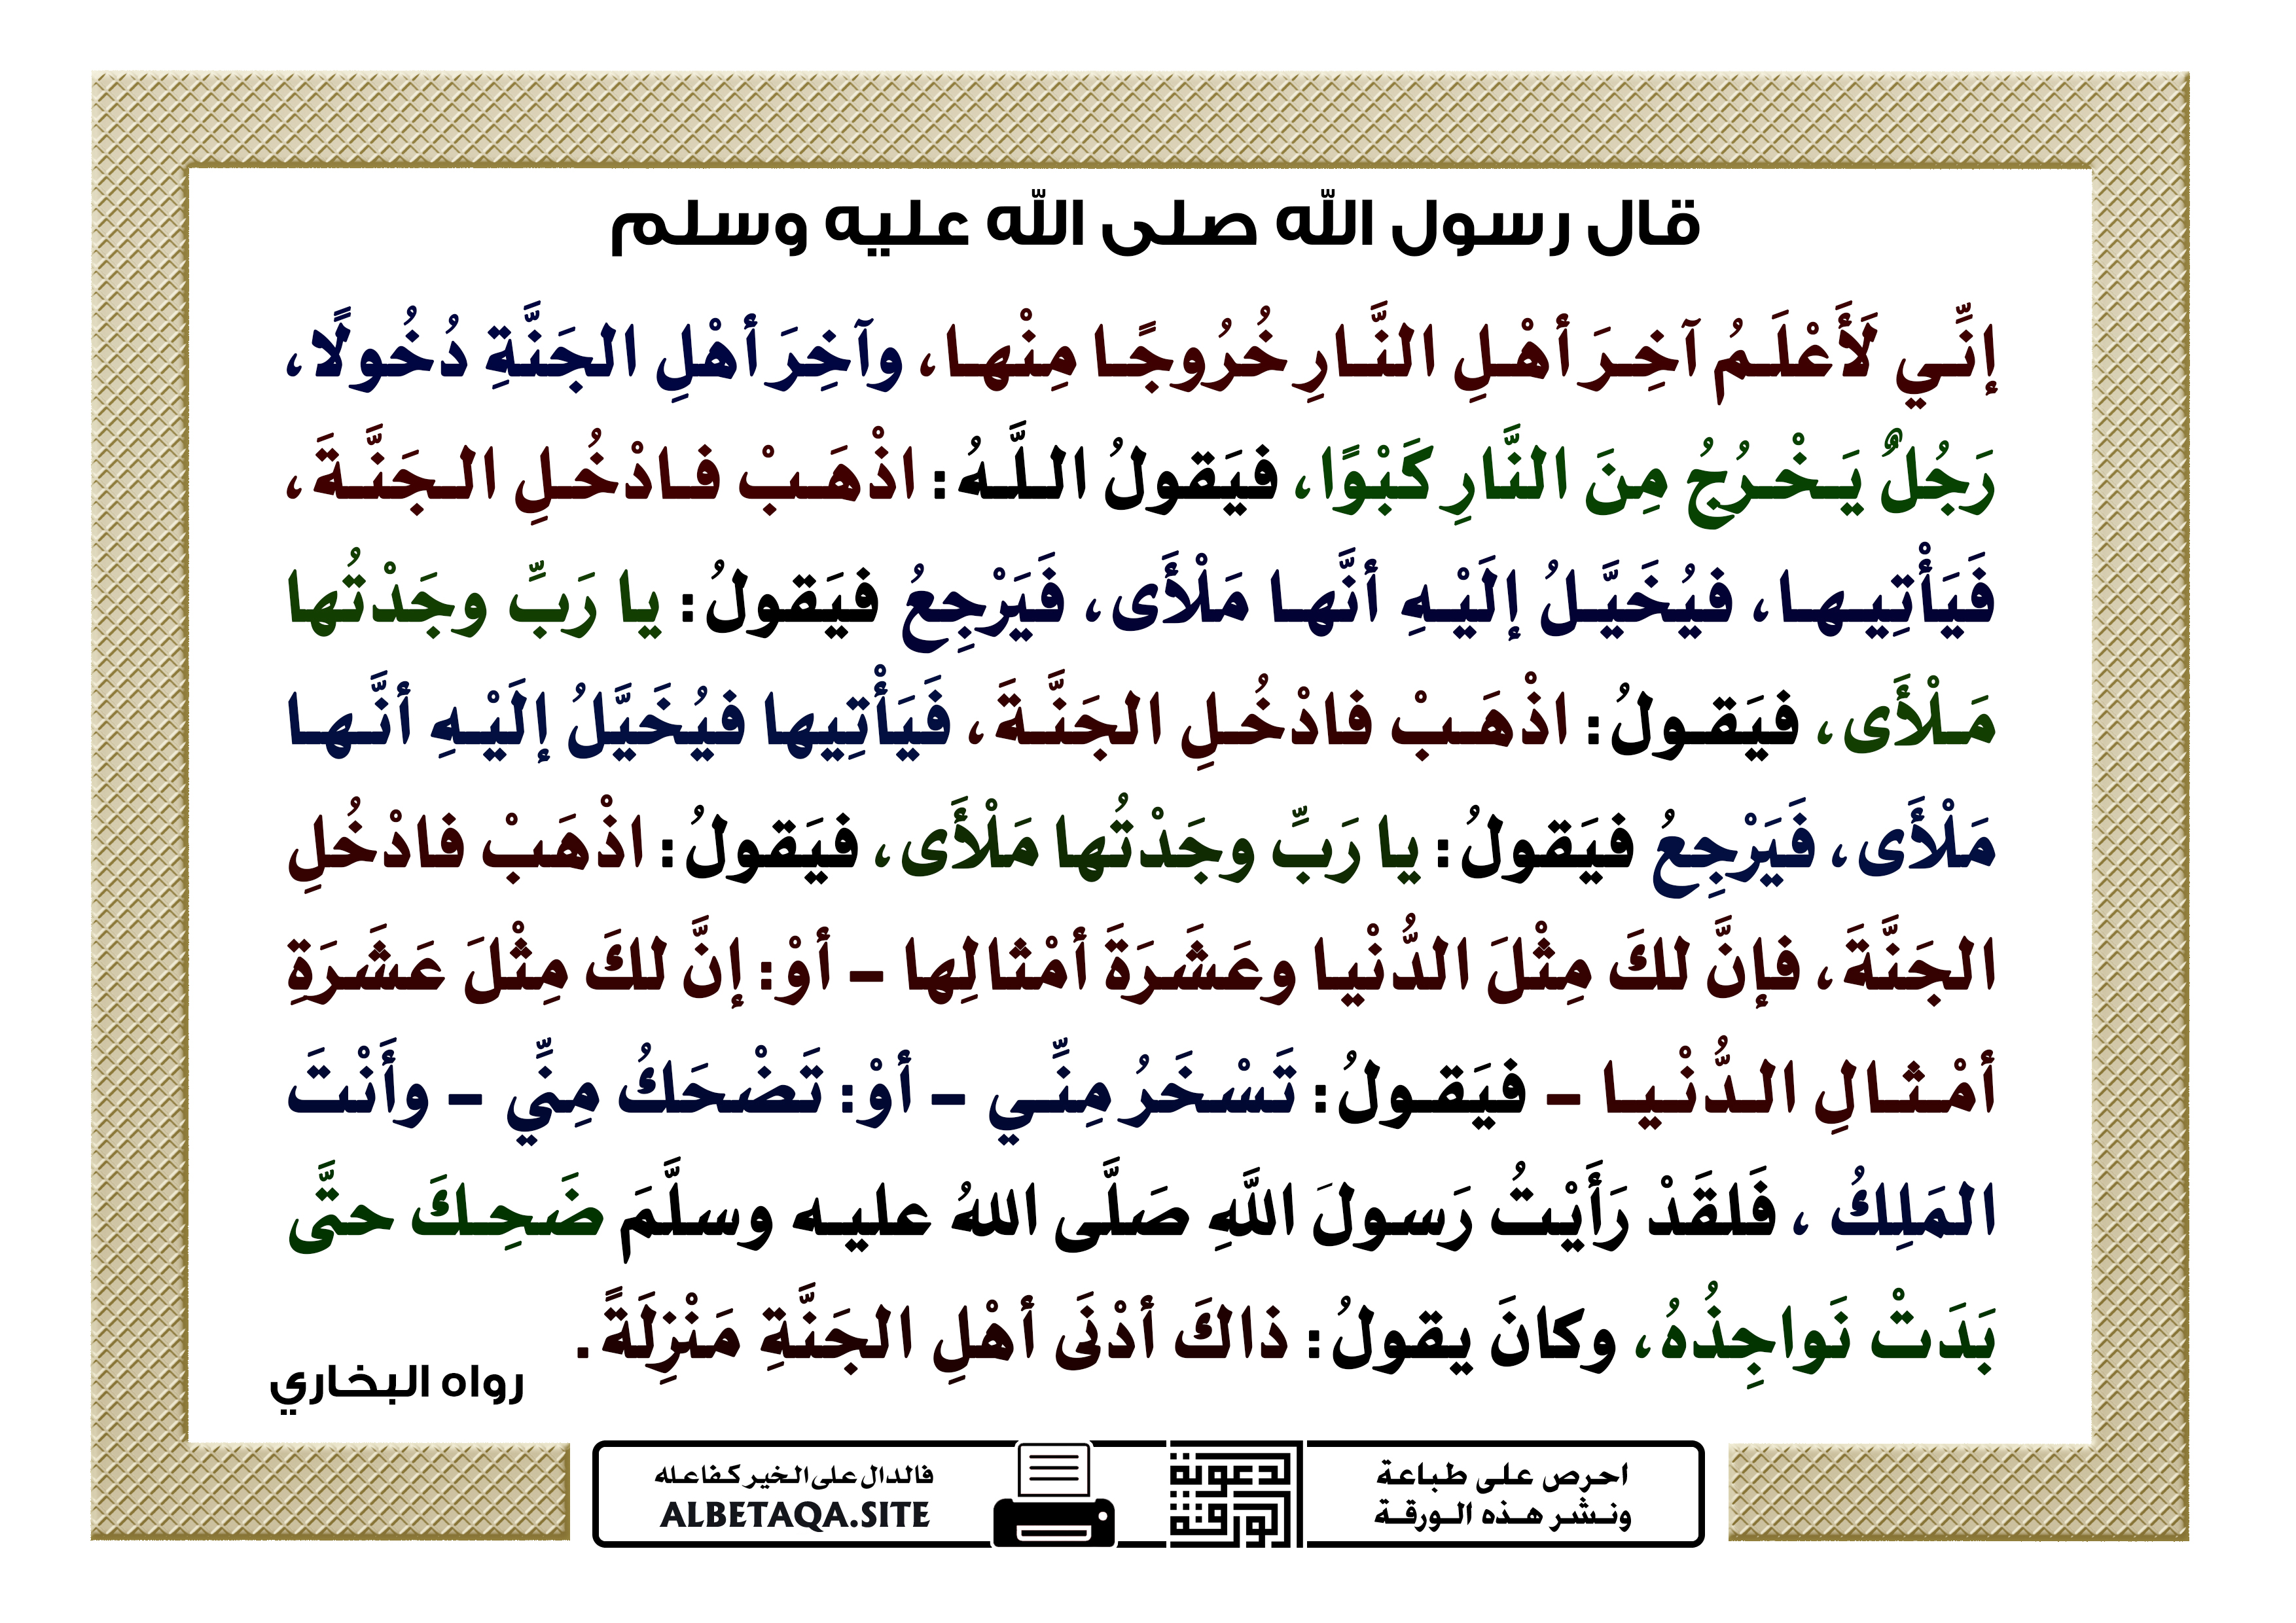 قال رسول الله صلى الله عليه وسلم
إنِّي لَأَعْلَمُ آخِرَ أهْلِ النَّارِ خُرُوجًا مِنْها، وآخِرَ أهْلِ الجَنَّةِ دُخُولًا،
رَجُلٌ يَخْرُجُ مِنَ النَّارِ كَبْوًا، فيَقولُ اللَّهُ: اذْهَبْ فادْخُلِ الجَنَّةَ،
فَيَأْتِيها، فيُخَيَّلُ إلَيْهِ أنَّها مَلْأَى، فَيَرْجِعُ فيَقولُ: يا رَبِّ وجَدْتُها
مَلْأَى، فيَقولُ: اذْهَبْ فادْخُلِ الجَنَّةَ، فَيَأْتِيها فيُخَيَّلُ إلَيْهِ أنَّها
مَلْأَى، فَيَرْجِعُ فيَقولُ: يا رَبِّ وجَدْتُها مَلْأَى، فيَقولُ: اذْهَبْ فادْخُلِ
الجَنَّةَ، فإنَّ لكَ مِثْلَ الدُّنْيا وعَشَرَةَ أمْثالِها – أوْ: إنَّ لكَ مِثْلَ عَشَرَةِ
أمْثالِ الدُّنْيا – فيَقولُ: تَسْخَرُ مِنِّي – أوْ: تَضْحَكُ مِنِّي – وأَنْتَ
المَلِكُ ، فَلقَدْ رَأَيْتُ رَسولَ اللَّهِ صَلَّى اللهُ عليه وسلَّمَ ضَحِكَ حتَّى
بَدَتْ نَواجِذُهُ، وكانَ يقولُ: ذاكَ أدْنَى أهْلِ الجَنَّةِ مَنْزِلَةً.
رواه البخاري
احرص على طباعة
ونشر هذه الورقة
لدعوية
الورقة
فالدال على الخير كفاعله
ALBETAQA.SITE